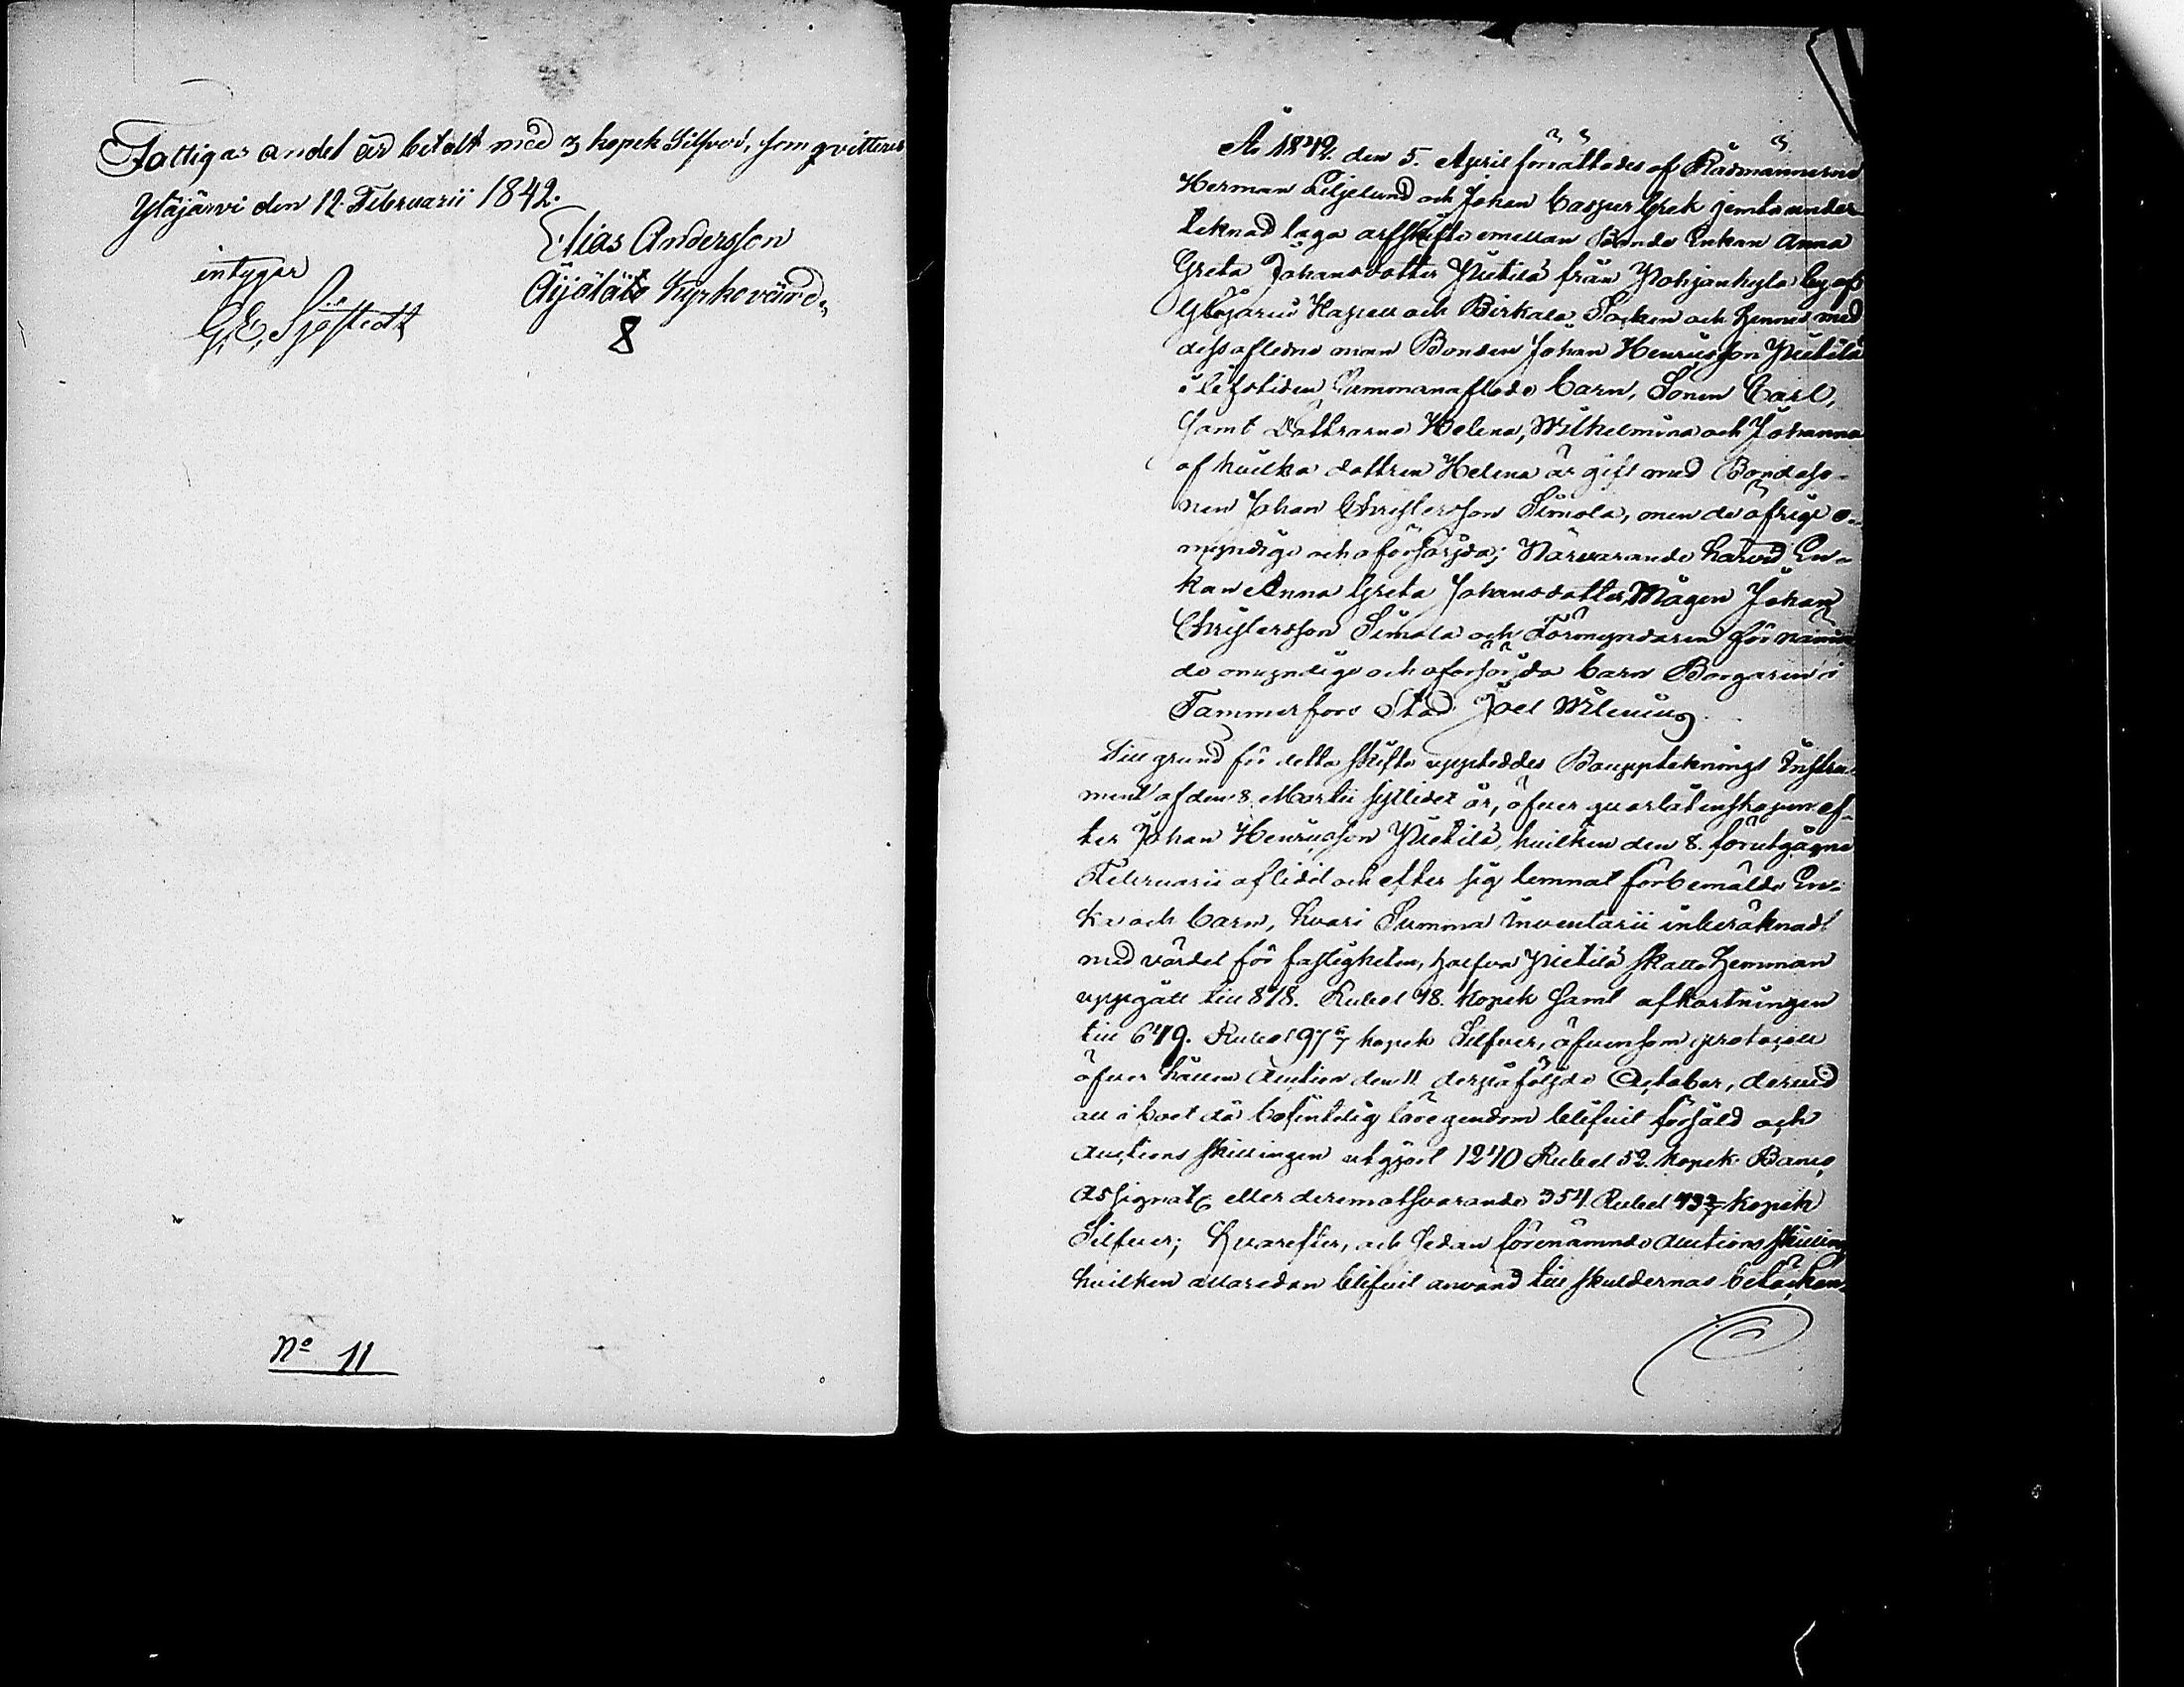 Fattigas andel är betalt med 3 kopek Silfver, som qvitteras
Ylöjärvi den 12. Februarii 1842.
Elias Andersson
Äijälätä Kyrkovärd.
intygar
G. E. Sjöstedt
8
No 11
År 1842. den 5. April förrättades af Rådmännerne
Herman Liljelund och Johan Casper Grek jemte under
teknad laga arfskifte emellan Bonde Enkan Anna
Greta Johansdotter Pietilä från Pohjankylä by af
Ylöjärvi Kapell och Birkala Socken och hennes med
dess afledne man Bonden Johan Henricsson Pietilä
i lifstiden sammanaflade barn, Sonen Carl,
samt Döttrarne Helena, Wilhelmina och Johanna
af hvilka dottren Helena är gift med Bondeso-
nen Johan Christersson Simola, men de öfrige o-
myndige och oförsörjda; Närvarande härvid En-
kan Anna Greta Johansdotter, Mågen Johan
Christersson Simola och Förmyndaren för nämn
de omyndige och oförsörjda barn Borgaren i
Tammerfors Stad Joel Wilenius
Till grund för detta skifte uppteddes Bouppteknings Instru-
ment af den 8. Martii sistlidet år, öfver qvarlåtenskapen ef-
ter Johan Henricsson Pietilä, hvilken den 8. förutgågne
Februarii aflidit och efter sig lemnat förbemälde En-
ka och barn, hvari Summa Inventarii inberäknadt
med värdet för fastigheten, halfva Pietilä Skatte Hemman
uppgått till 818. Rubel 48. kopek samt afkortningen
till 649. Rubel 97 kopek Silfver, äfvensom protocoll
öfver hållen Auction den 11 derpåföljde October, dervid
all i boet då befintelig lösegendom blifvit försåld och
Auctions skillingen utgjort 1240 Rubel 52. kopek Banco
Assignat. eller deremot svarande 354 Rubel 43 3/7 kopek
Silfver; Hvarefter, och sedan förenämnde Auctions skilling
hvilken allaredan blifvit använd till skuldernas betäckan-